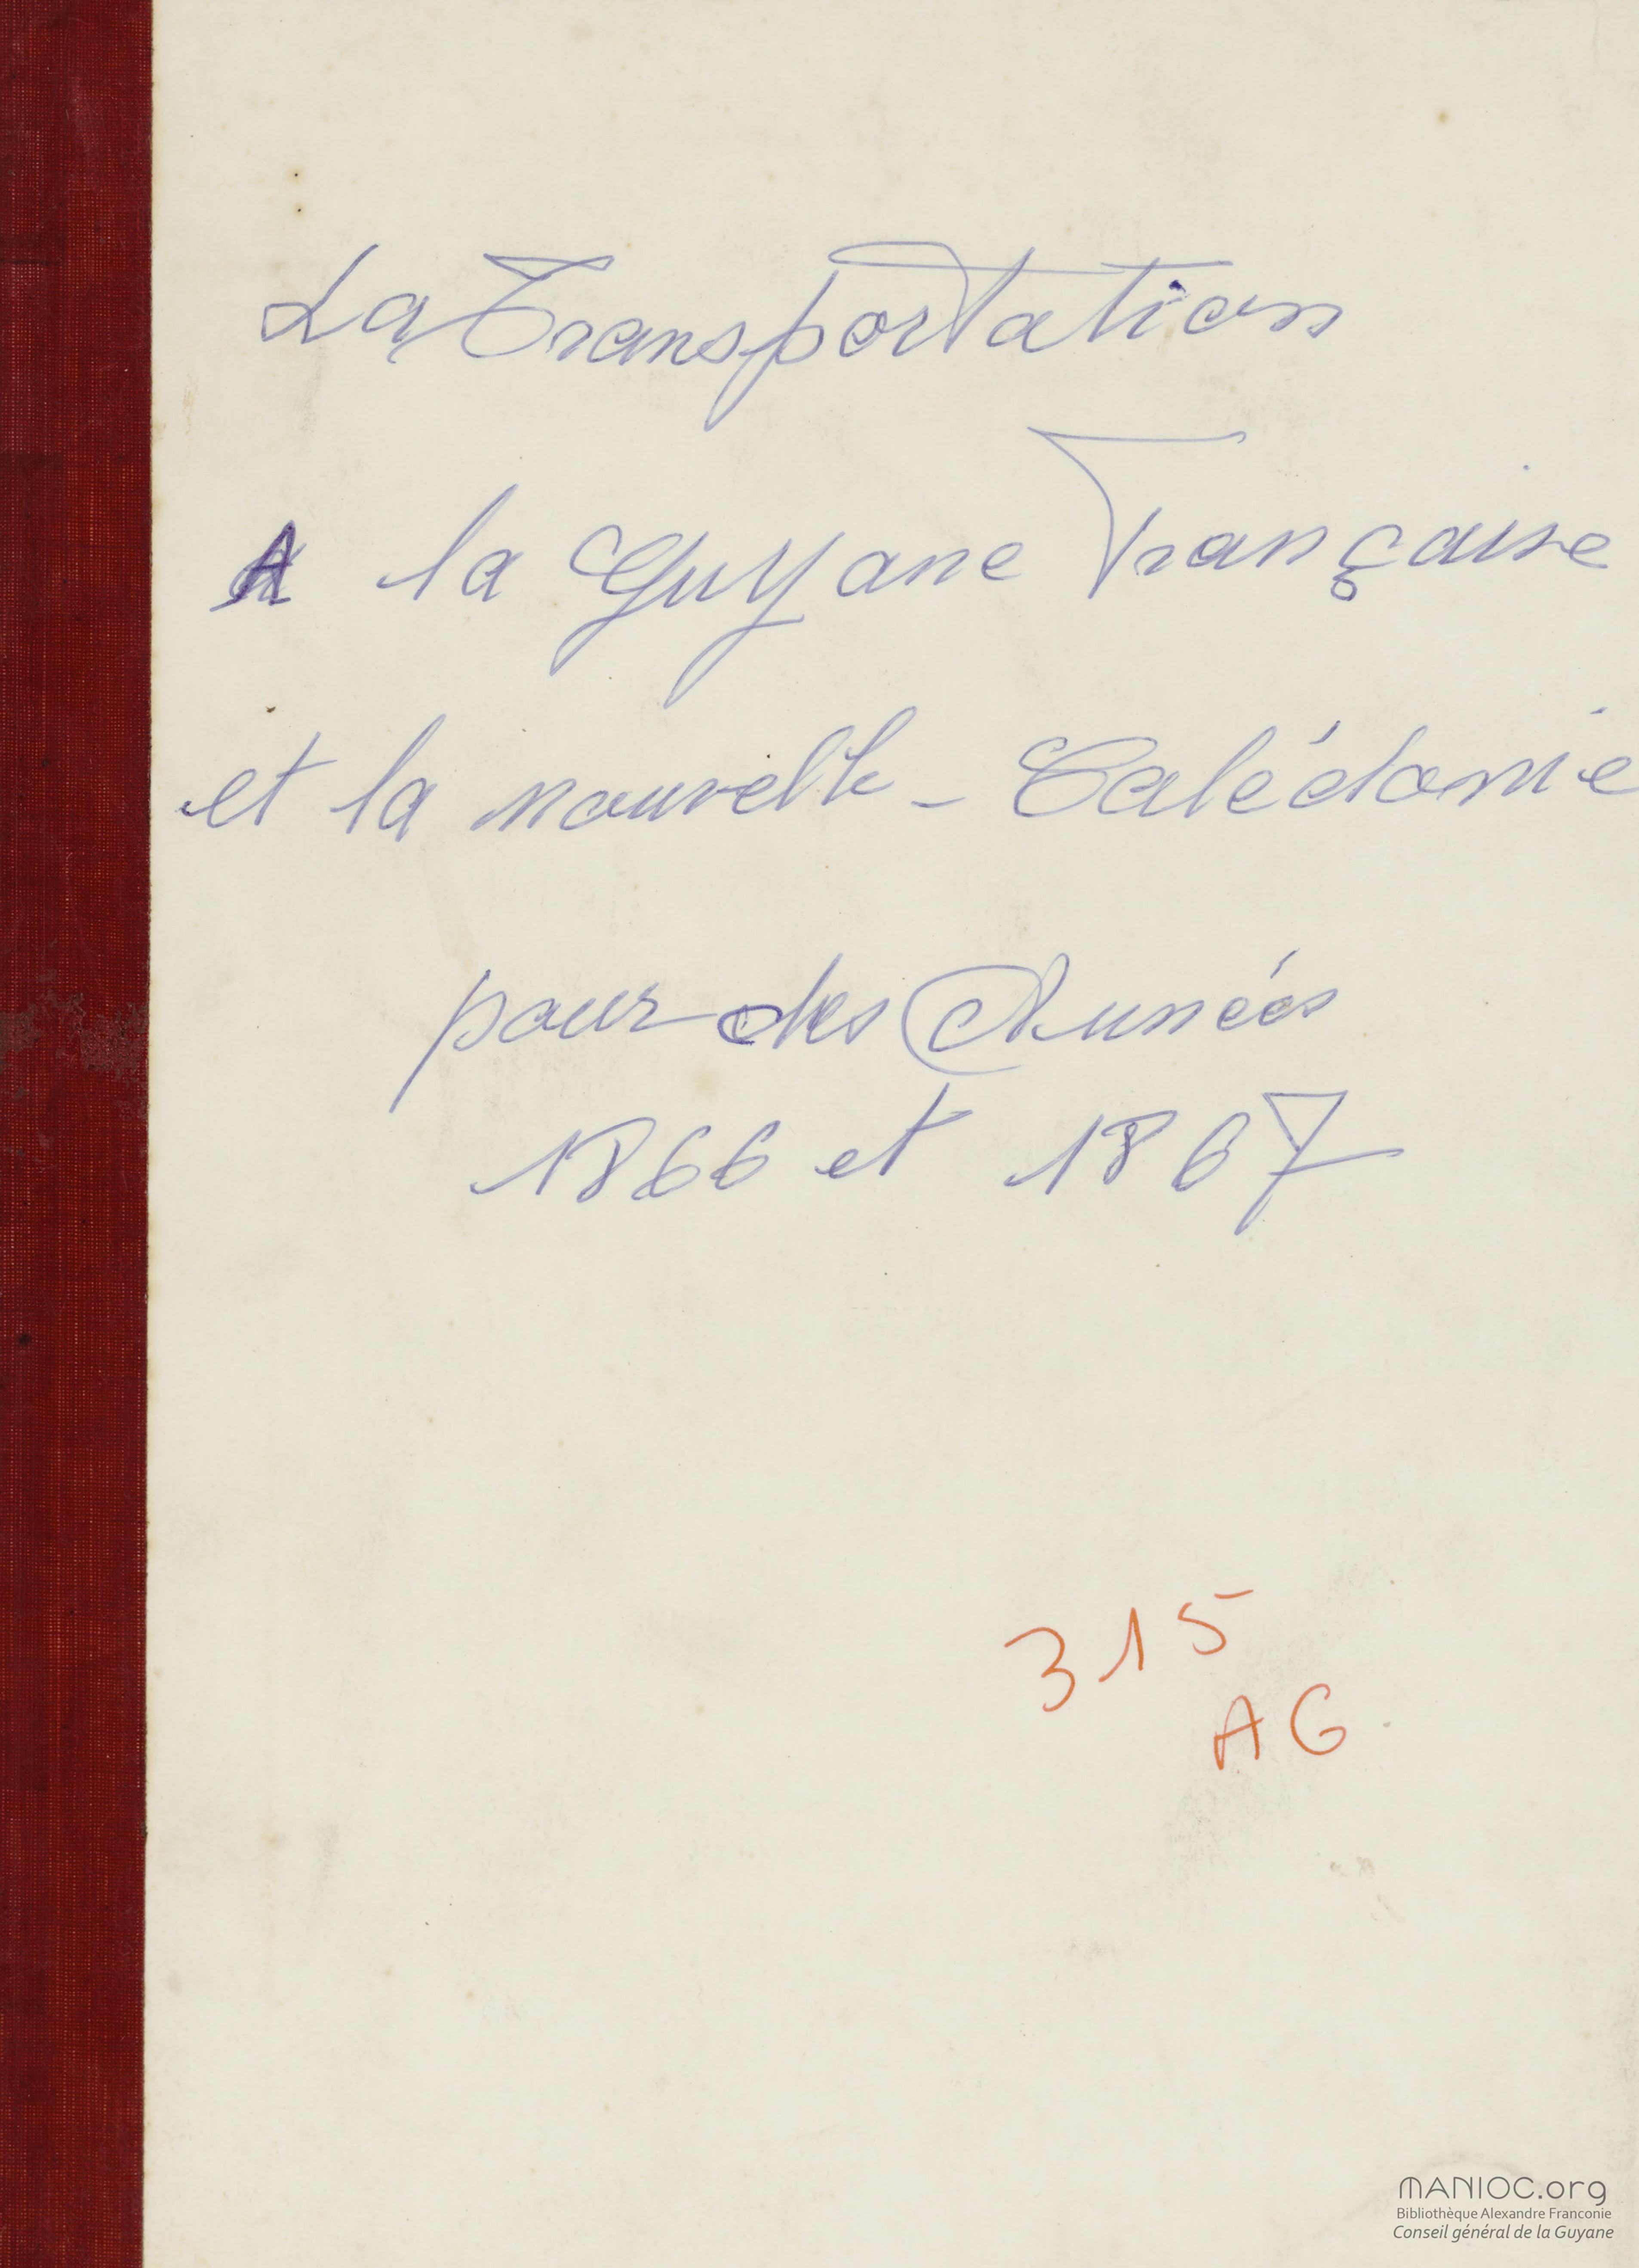 La Transportation
A la Guyane Française
et la nouvelle - Calédonie
pour des Années
1866 et 1867
315
AG
MANIOC.org
Bibliothèque Alexandre Franconie
Conseil général de la Guyane